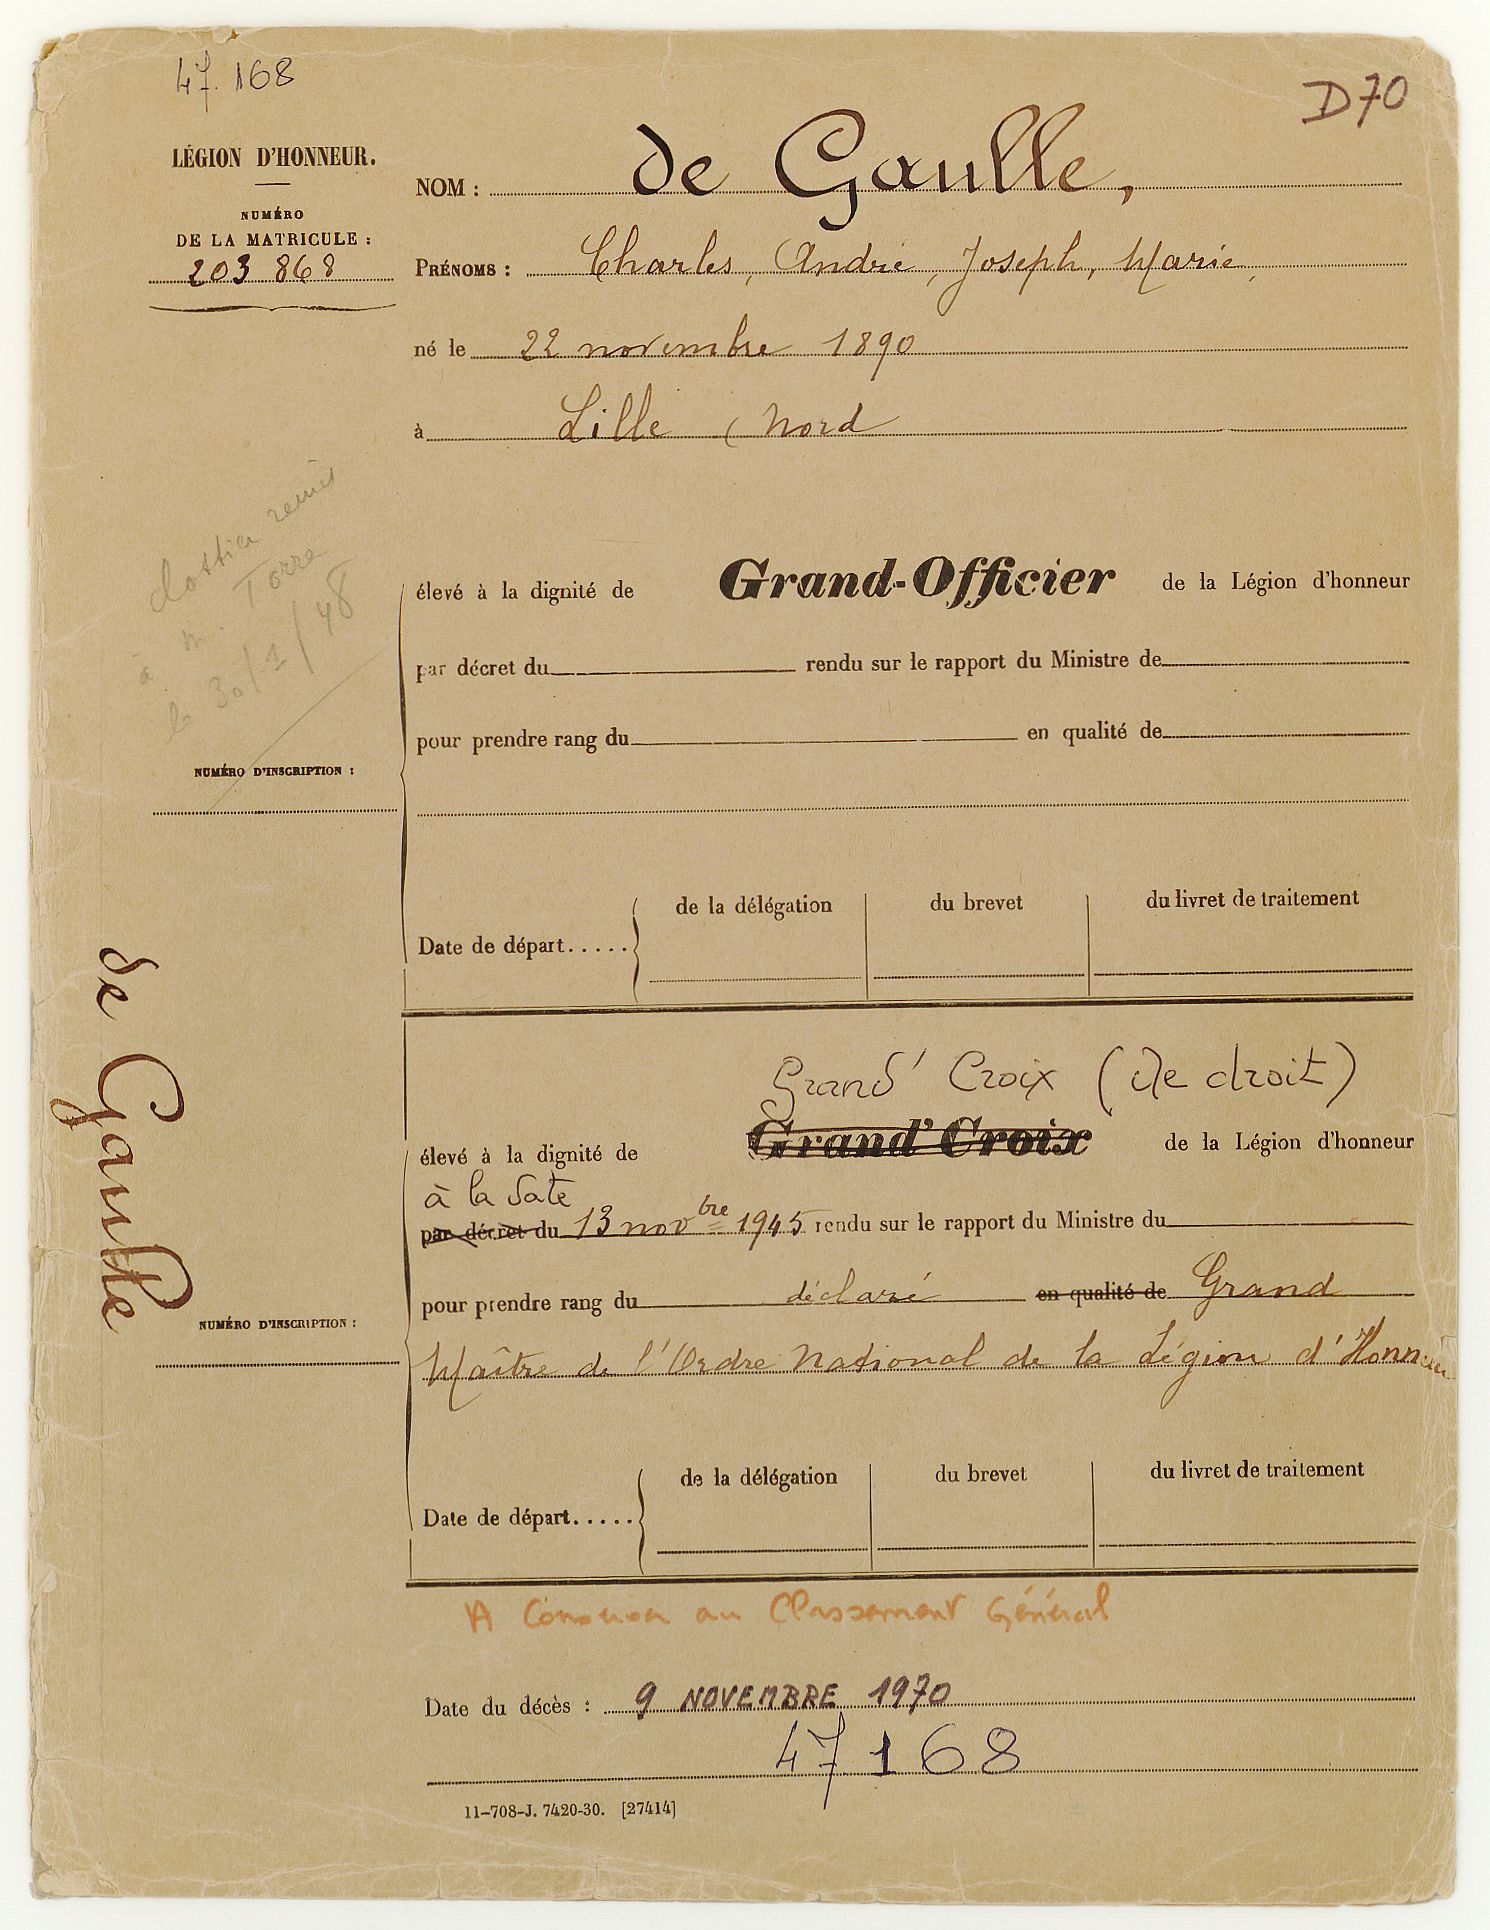 47.168
D70
LÉGION D'HONNEUR.
NUMÉRO
DE LA MATRICULE :
203 868
NOM : de Gaulle,
PRÉNOMS : Charles, André, Joseph, Marie,
né le 22 novembre 1890
à Lille (Nord
dossier remis
à M. Torre
le 30/1/48
élevé à la dignité de Grand-Officier de la Légion d'honneur
par décret du rendu sur le rapport du Ministre de
pour prendre rang du en qualité de
NUMÉRO D'INSCRIPTION :
de la délégation du brevet du livret de traitement
Date de départ.....
de Gaulle
Grand' Croix (de droit)
élevé à la dignité de Grand' Croix de la Légion d'honneur
à la date
par décret du 13 novbre 1945 rendu sur le rapport du Ministre du
pour prendre rang du déclaré en qualité de Grand
NUMÉRO D'INSCRIPTION :
Maître de l'Ordre National de la Légion d'Honneur
de la délégation du brevet du livret de traitement
Date de départ.....
A au Classement Général
Date du décès : 9 NOVEMBRE 1970
47168
11-708-J. 7420-30. [27414]